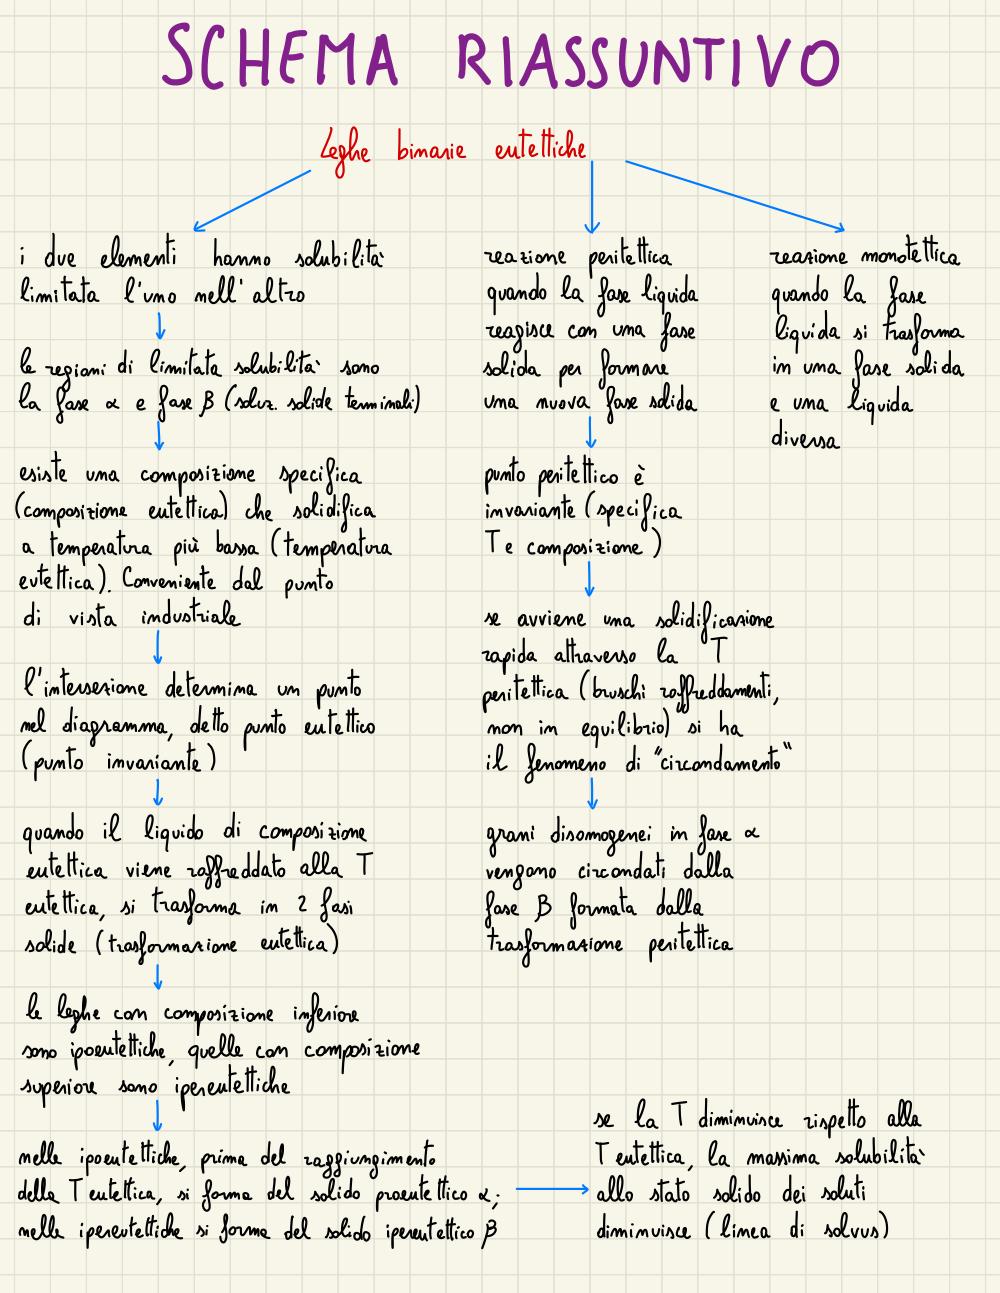 SCHEMA RIASSUNTIVO
Leghe binarie eutettiche
i due elementi hanno solubilità
limitata l'uno nell'altro
le regioni di limitata solubilità sono
la fase α e fase β (soluz. solide terminali)
esiste una composizione specifica
(composizione eutettica) che solidifica
a temperatura più bassa (temperatura
eutettica). Conveniente dal punto
di vista industriale
l'intersezione determina un punto
nel diagramma, detto punto eutettico
(punto invariante)
quando il liquido di composizione
eutettica viene raffreddato alla T
eutettica, si trasforma in 2 fasi
solide (trasformazione eutettica)
le leghe con composizione inferiore
sono ipoeutettiche, quelle con composizione
superiore sono ipereutettiche
nelle ipoeutettiche, prima del raggiungimento
della T eutettica, si forma del solido proeutettico α;
nelle ipereutettiche si forma del solido ipereutettico β
se la T diminuisce rispetto alla
T eutettica, la massima solubilità
allo stato solido dei soluti
diminuisce (linea di solvus)
reazione peritettica
quando la fase liquida
reagisce con una fase
solida per formare
una nuova fase solida
punto peritettico è
invariante (specifica
T e composizione)
se avviene una solidificazione
rapida attraverso la T
peritettica (bruschi raffreddamenti,
non in equilibrio) si ha
il fenomeno di "circondamento"
grani disomogenei in fase α
vengono circondati dalla
fase β formata dalla
trasformazione peritettica
reazione monotettica
quando la fase
liquida si trasforma
in una fase solida
e una liquida
diversa